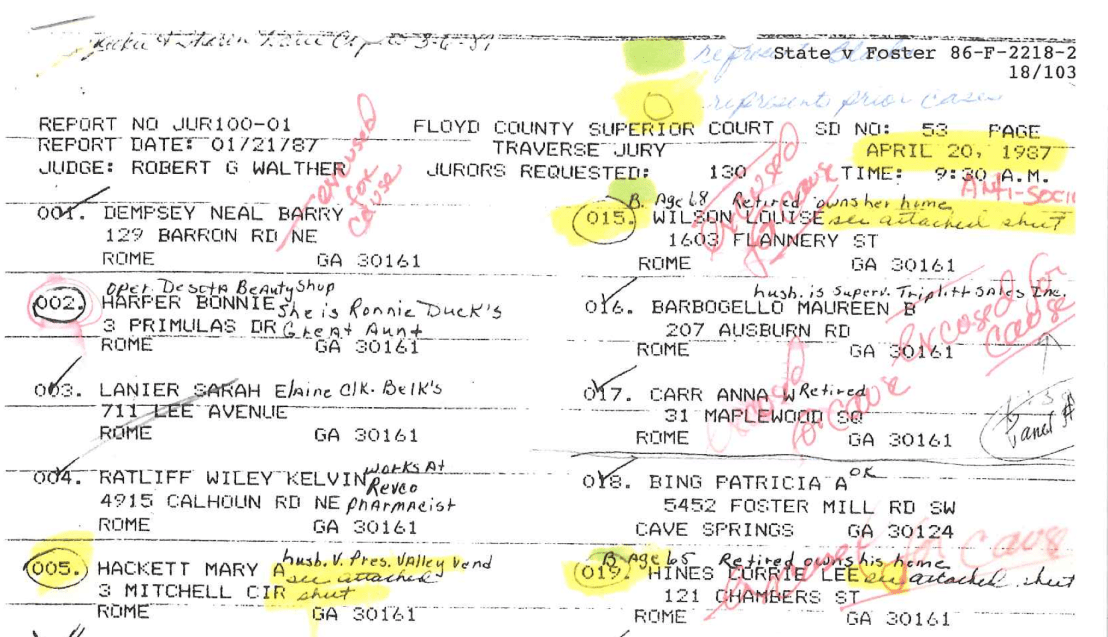 represents Blacks
State v Foster 86-F-2218-2
18/103
represents prior cases
REPORT NO JUR100-01 FLOYD COUNTY SUPERIOR COURT SD NO: 53 PAGE
REPORT DATE: 01/21/87 TRAVERSE JURY APRIL 20, 1987
JUDGE: ROBERT G WALTHER JURORS REQUESTED: 130 TIME: 9:30 A.M.
001. DEMPSEY NEAL BARRY
129 BARRON RD NE
ROME GA 30161
excused for cause
oper. Desota Beauty Shop
002. HARPER BONNIE She is Ronnie Duck's
3 PRIMULAS DR Great Aunt
ROME GA 30161
003. LANIER SARAH Elaine Clk. Belk's
711 LEE AVENUE
ROME GA 30161
004. RATLIFF WILEY KELVIN works At
Revco
4915 CALHOUN RD NE pharmacist
ROME GA 30161
husb. V. Pres. Valley Vend
005. HACKETT MARY A see attached
3 MITCHELL CIR sheet
ROME GA 30161
ANTI-SOCI
B. Age 68 Retired owns her home
015. WILSON LOUISE see attached sheet
1603 FLANNERY ST
ROME GA 30161
excused for cause
husb. is Superv. Triplitt Sales Inc.
016. BARBOGELLO MAUREEN B
207 AUSBURN RD
ROME GA 30161
excused for cause
017. CARR ANNA W Retired
31 MAPLEWOOD SQ
ROME GA 30161
excused for cause
018. BING PATRICIA A OK
5452 FOSTER MILL RD SW
CAVE SPRINGS GA 30124
B. Age 65 Retired owns his home
019. HINES CORRIE LEE see attached sheet
121 CHAMBERS ST
ROME GA 30161
excused for cause